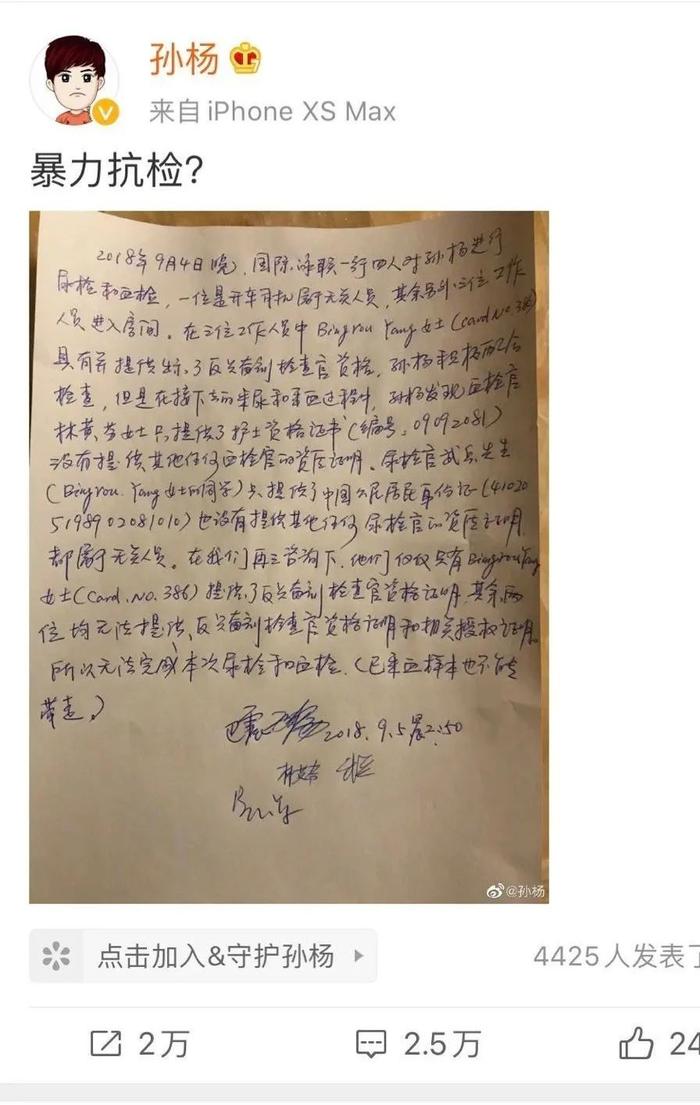 孙杨
来自 iPhone XS Max
暴力抗检?
2018年9月4日晚, 国际泳联一行四人对孙杨进行
尿检和血检, 一位是开车司机属于无关人员, 其余另外三位工作
人员进入房间。在三位工作人员中 Bingrou Yang 女士(card No. 386)
具有并提供出示了反兴奋剂检查官资格, 孙杨积极配合
检查, 但是在接下去的采尿和采血过程中, 孙杨发现血检官
林黄芬女士只提供了护士资格证书(编号: 09092081)
没有提供其他任何血检官的资质证明。尿检官武兵先生
(Bingrou. Yang 女士的同学)只提供了中国公民居民身份证(41020
5198902081010)也没有提供其他任何尿检官的资质证明
都属于无关人员。在我们再三咨询下, 他们仅仅只有Bingrou Yang
女士(Card. No. 386)提供了反兴奋剂检查官资格证明, 其余两
位均无法提供反兴奋剂检查官资格证明和相关授权证明
所以无法完成本次尿检和血检.(已采血样本也不能
带走。)
2018.9.5晨2:50
@孙杨
点击加入&守护孙杨
4425人发表了
2万
2.5万
24